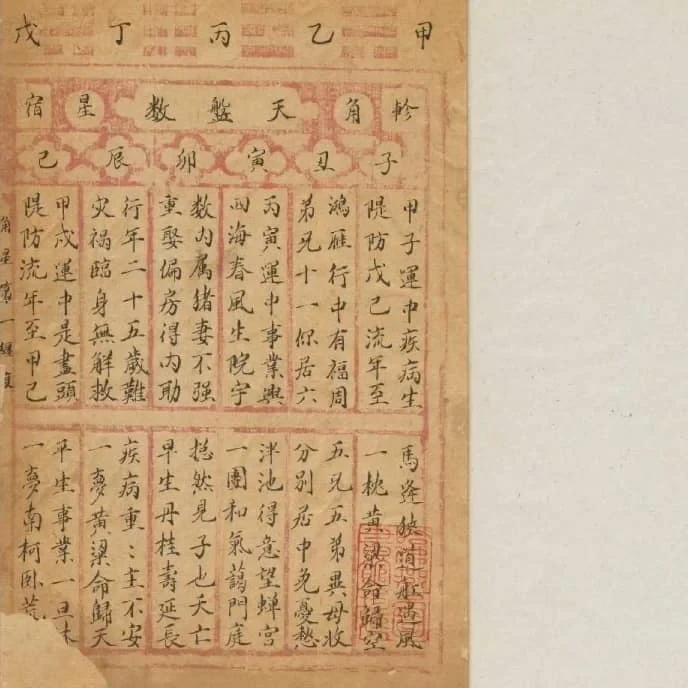 甲乙丙丁戊
軫角天盤數星宿
子丑寅卯辰己
甲子運中疾病生
隄防戊己流年至
鴻雁行中有福周
弟兄十一你居六
丙寅運中事業興
四海春風生院宇
數内属猪妻不强
重娶偏房得内助
行年二十五歲難
灾禍臨身無解救
甲戌運中是盡頭
隄防流年至甲己
馬逢狹道船遇風
一枕黄粱命歸空
五兄五弟異母收
分别居中免憂愁
泮池得意望蟬宫
一團和氣藹門庭
揔然見子也夭亡
早生丹桂壽延長
疾病重〻主不安
一夢黄粱命歸天
平生事業一旦休
一夢南柯卧荒
角星